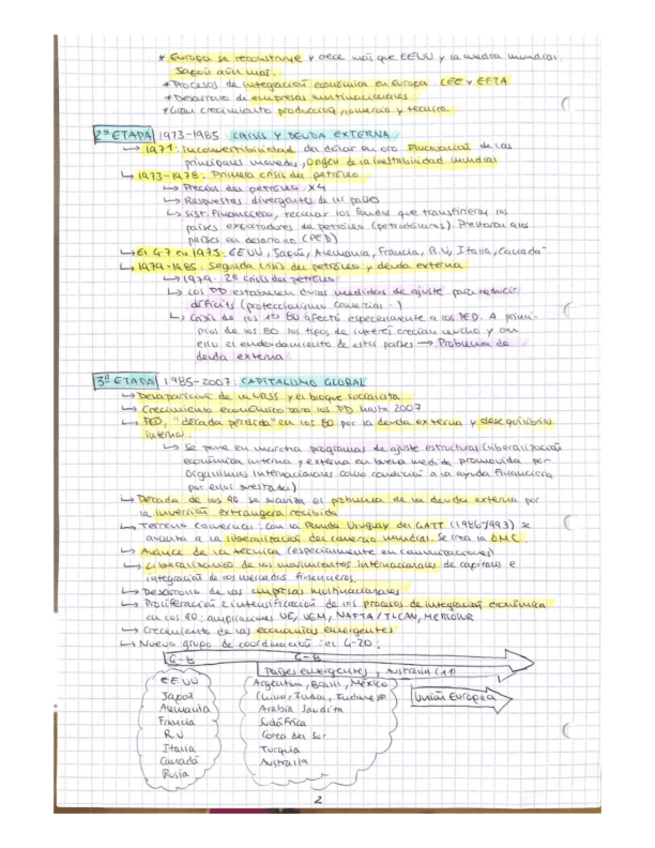 * Europa se reconstruye y crece más que EEUU y la media mundial.
Japón aún más.
* Procesos de integración económica en Europa CEE y EFTA
* Desarrollo de empresas multinacionales
* Gran crecimiento productivo, comercio y técnico.
2ª ETAPA 1973-1985: CRISIS Y DEUDA EXTERNA
↳ 1971: Inconvertibilidad del dólar en oro. Fluctuación de las
principales monedas, origen de la inestabilidad mundial
↳ 1973-1978: Primera crisis del petróleo
↳ Precios del petróleo x4
↳ Respuestas divergentes de los países
↳ Sist. Financiero, reciclar los fondos que transfirieron los
países exportadores de petróleo (petrodólares). Prestaron a los
países en desarrollo (PED)
↳ El G-7 en 1975: EEUU, Japón, Alemania, Francia, R.U, Italia, Canadá
↳ 1979-1985: Segunda crisis del petróleo y deuda externa
↳ 1979: 2ª crisis del petróleo
↳ Los PD establecen duras medidas de ajuste para reducir
déficits (proteccionismo comercial ↑)
↳ Crisis de los 80 afectó especialmente a los PED. A princi-
pios de los 80 los tipos de interés crecían mucho y con
ello el endeudamiento de estos países → Problema de
deuda externa.
3ª ETAPA 1985-2007: CAPITALISMO GLOBAL
↳ Desaparición de la URSS y el bloque socialista
↳ Crecimiento económico para los PD hasta 2007
↳ PED, "década perdida" en los 80 por la deuda externa y desequilibrios
internos.
↳ Se pone en marcha programas de ajuste estructural (liberalización
económica interna y externa en buena medida promovida por
Organismos Internacionales como condición a la ayuda financiera
por ellos prestada)
↳ Década de los 90 se suaviza el problema de la deuda externa por
la inversión extranjera recibida
↳ Terreno comercial: con la Ronda Uruguay del GATT (1986/1993) se
avanza a la liberalización del comercio mundial. Se crea la OMC.
↳ Avance de la técnica (especialmente en comunicaciones)
↳ Liberalización de los movimientos internacionales de capitales e
integración de los mercados financieros.
↳ Desarrollo de las empresas multinacionales
↳ Proliferación e intensificación de los procesos de integración económica
en los 90: ampliaciones UE, UEM, NAFTA/TLCAN, MERCOSUR
↳ Crecimiento de las economías emergentes
↳ Nuevo grupo de coordinación: el G-20:
G-8 G-8
Países emergentes, Australia (11)
EEUU
Japón
Alemania
Francia
R.U
Italia
Canadá
Rusia
Argentina, Brasil, México
China, India, Indones*
Arabia Saudita
Sudáfrica
Corea del Sur
Turquía
Australia
Unión Europea
2